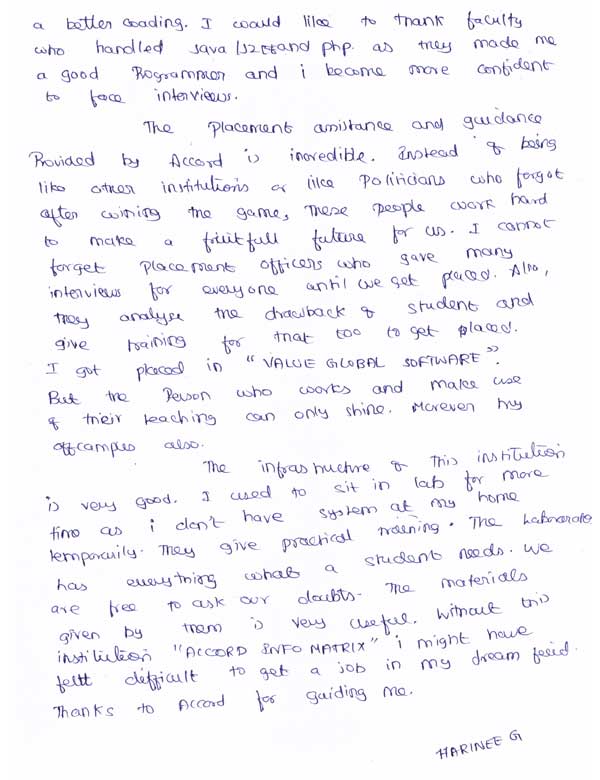 a better coading. I would like to thank faculty
who handled Java/J2EE and php. as they made me
a good Programmer and i become more confident
to face interviews.
The placement assistance and guidance
Provided by Accord is incredible. Instead of being
like other institutions or like Politicians who forgot
after wining the game, These people work hard
to make a fruitfull future for us. I cannot
forget placement officers who gave many
interviews for everyone until we get placed. Also,
they analyse the drawback of student and
give training for that too to get placed.
I got placed in "VALUE GLOBAL SOFTWARE".
But the Person who works and make use
of their teaching can only shine. Morever try
offcampus also.
The infrastructure of this institution
is very good. I used to sit in lab for more
time as i don't have system at my home
temporaily. They give practical training. The
has everything what a student needs. We
are free to ask our doubts. The materials
given by them is very useful. Without this
institution "ACCORD INFO MATRIX" i might have
feltt difficult to get a job in my dream feild.
Thanks to Accord for guiding me.
HARINEE G